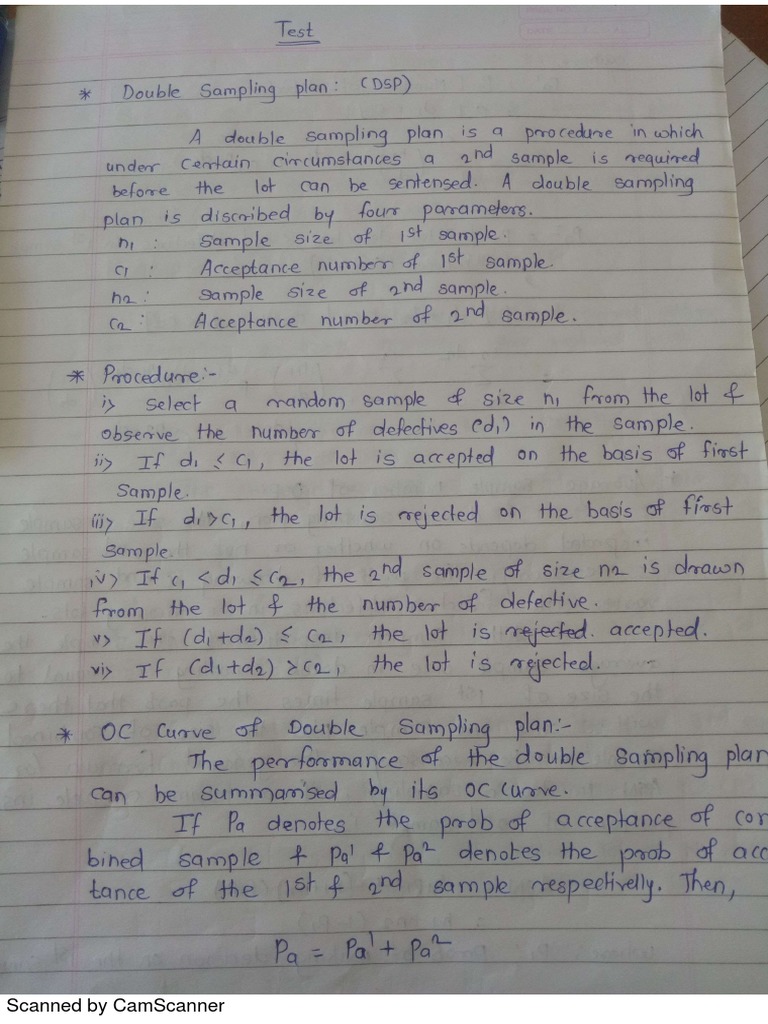 Test
* Double Sampling plan: (DSP)
A double sampling plan is a procedure in which
under certain circumstances a 2nd sample is required
before the lot can be sentensed. A double sampling
plan is discribed by four parameters.
n1 : Sample size of 1st sample.
c1 : Acceptance number of 1st sample.
n2 : Sample size of 2nd sample.
c2 : Acceptance number of 2nd sample.
* Procedure:-
i> Select a random sample of size n1 from the lot &
observe the number of defectives (d1) in the sample.
ii> If d1 ≤ c1, the lot is accepted on the basis of first
Sample.
iii> If d1 > c1, the lot is rejected on the basis of first
sample.
iv> If c1 < d1 ≤ c2, the 2nd sample of size n2 is drawn
from the lot & the number of defective.
v> If (d1+d2) ≤ c2, the lot is rejected. accepted.
vi> If (d1+d2) > c2, the lot is rejected.
* OC Curve of Double Sampling plan:-
The performance of the double sampling plan
can be summarised by its OC curve.
If Pa denotes the prob of acceptance of com
bined sample & Pa1 & Pa2 denotes the prob of acc
tance of the 1st & 2nd sample respectivelly. Then,
Pa = Pa1 + Pa2
Scanned by CamScanner